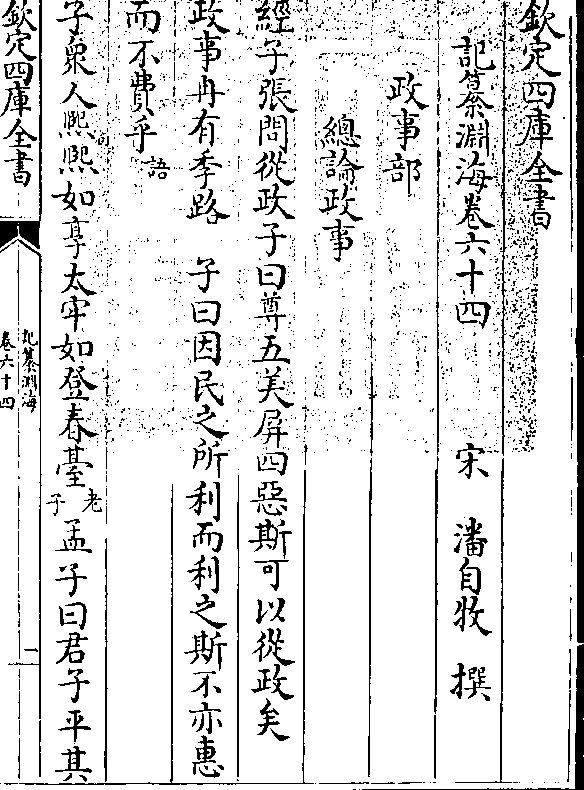 欽定四庫全書
記纂淵海卷六十四
宋 潘自牧 撰
政事部
總論政事
經子張問從政子曰尊五美屏四惡斯可以從政矣
政事冉有季路 子曰因民之所利而利之斯不亦惠
而不費乎語
子衆人熈熈如享太牢如登春臺老子孟子曰君子平其
欽定四庫全書
記纂淵海
卷六十四
一